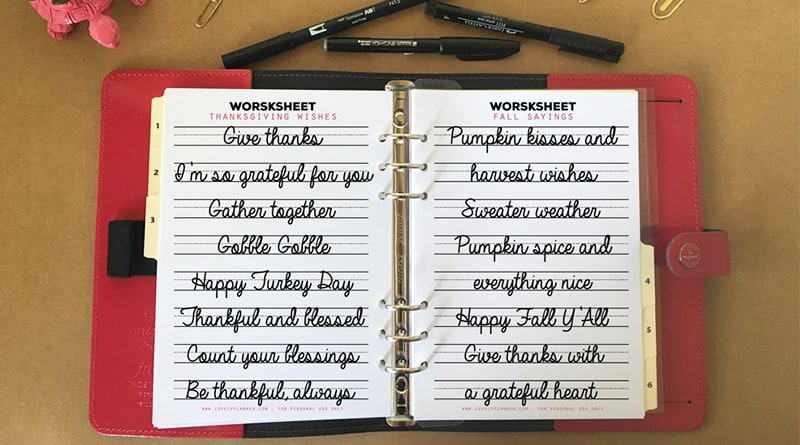 WORSKSHEET
THANKSGIVING WISHES
Give thanks
I'm so grateful for you
Gather together
Gobble Gobble
Happy Turkey Day
Thankful and blessed
Count your blessings
Be thankful, always
WWW.LOVELYPLANNER.COM - FOR PERSONAL USE ONLY
WORSKSHEET
FALL SAYINGS
Pumpkin kisses and
harvest wishes
Sweater weather
Pumpkin spice and
everything nice
Happy Fall Y'All
Give thanks with
a grateful heart
WWW.LOVELYPLANNER.COM - FOR PERSONAL USE ONLY
1
2
3
4
5
6